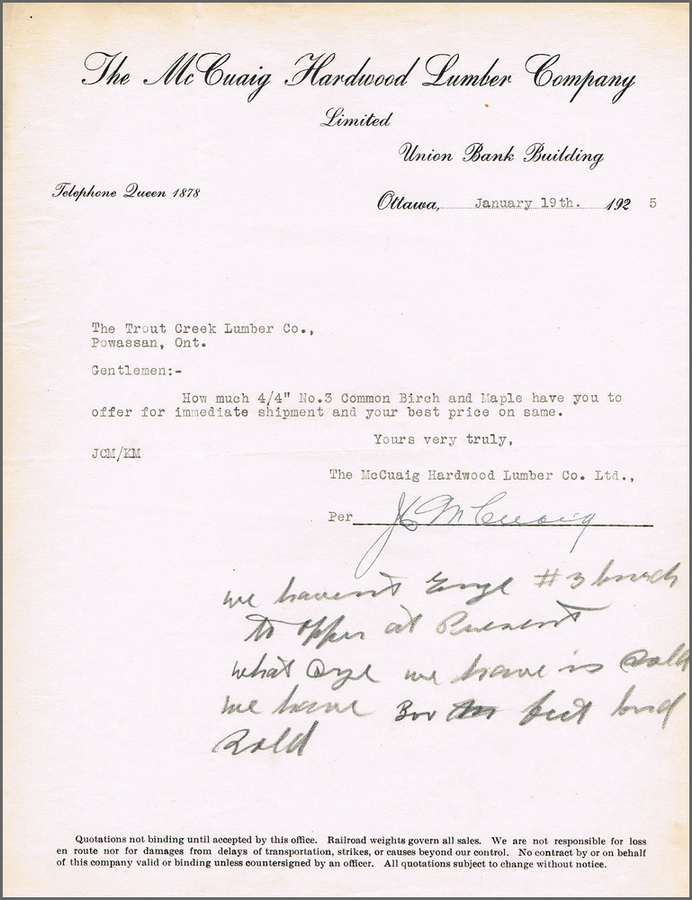 The McCuaig Hardwood Lumber Company
Limited
Union Bank Building
Telephone Queen 1878
Ottawa, January 19th. 1925
The Trout Creek Lumber Co.,
Powassan, Ont.
Gentlemen:-
How much 4/4" No.3 Common Birch and Maple have you to
offer for immediate shipment and your best price on same.
Yours very truly,
JCM/KM
The McCuaig Hardwood Lumber Co. Ltd.,
Per JC McCuaig
we havent #3 birch
to offer at Present
what we have is Sold
we have feet
Sold
Quotations not binding until accepted by this office. Railroad weights govern all sales. We are not responsible for loss
en route nor for damages from delays of transportation, strikes, or causes beyond our control. No contract by or on behalf
of this company valid or binding unless countersigned by an officer. All quotations subject to change without notice.